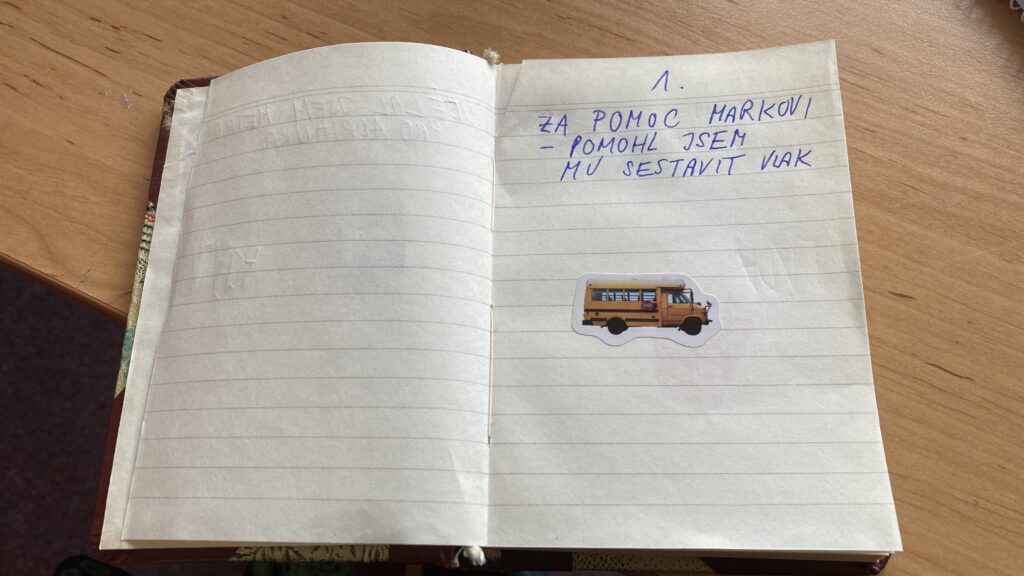 1.
ZA POMOC MARKOVI
- POMOHL JSEM
MU SESTAVIT VLAK